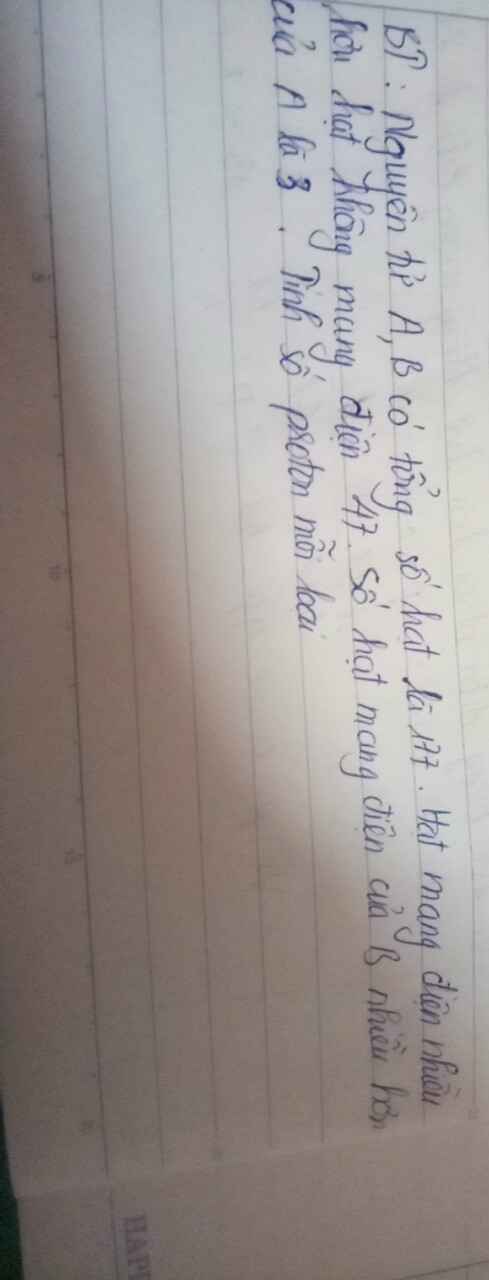 BT: Nguyên tử A, B có tổng số hạt là 177. Hạt mang điện nhiều
hơn hạt không mang điện 47. Số hạt mang điện của B nhiều hơn
của A là 8. Tính số proton mỗi loại